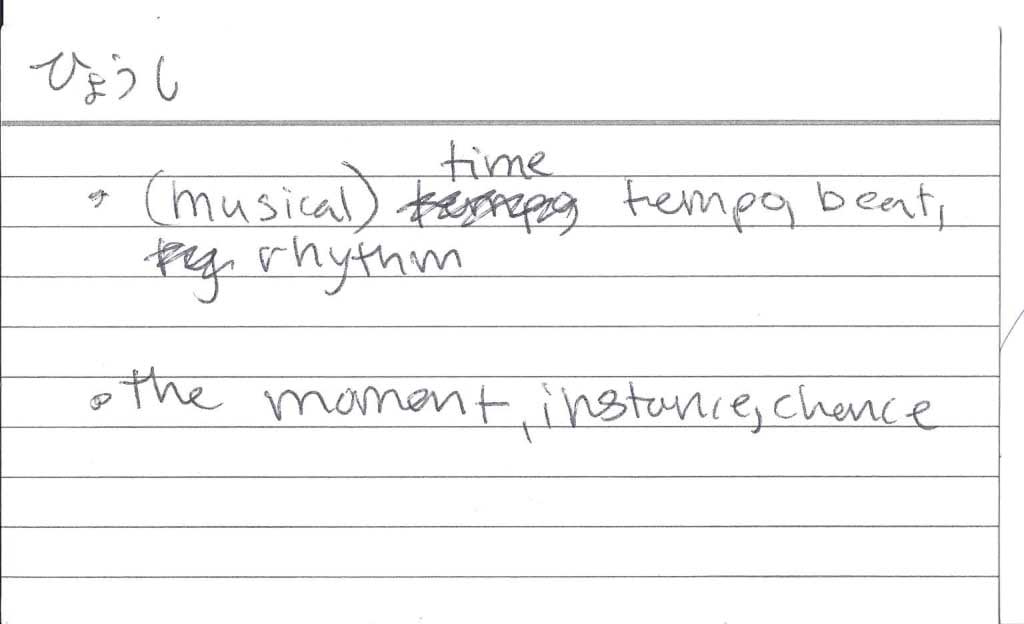 ひょうし
• (musical) time tempo, beat,
rhythm
• the moment, instance, chance